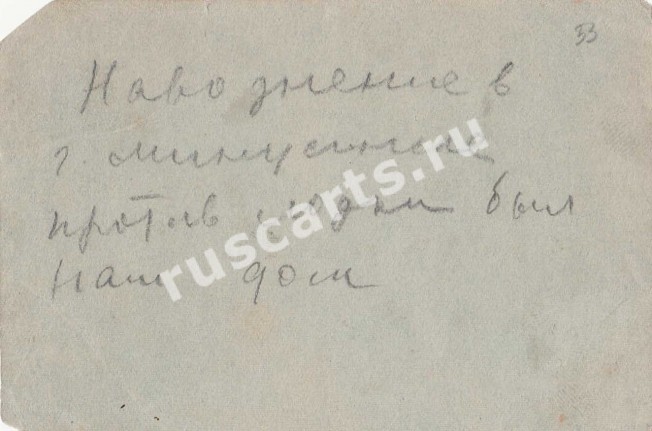 33
Наводнение в
г минусинске
против был
наш дом
ruscarts.ru